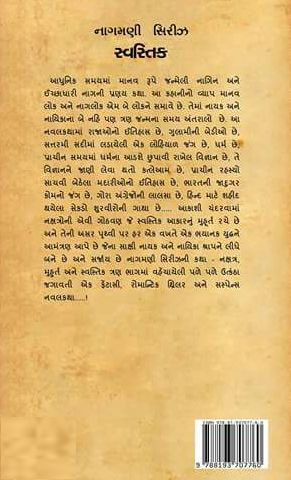 નાગમણી સિરીઝ
સ્વસ્તિક
આધુનિક સમયમાં માનવ રૂપે જન્મેલી નાગિન અને
ઈચ્છાધારી નાગની પ્રણય કથા. આ કહાનીનો વ્યાપ માનવ
લોક અને નાગલોક એમ બે લોકને સમાવે છે. તેમાં નાયક અને
નાયિકાના બે નહિ પણ ત્રણ જન્મના સમય અંતરાલો છે. આ
નવલકથામાં રાજાઓનો ઈતિહાસ છે, ગુલામીની બેડીઓ છે,
સત્તરમી સદીમાં લડાયેલી એક લોહિયાળ જંગ છે, ધર્મ છે,
પ્રાચીન સમયમાં ધર્મના આડશે છુપાવી રાખેલ વિજ્ઞાન છે, તે
વિજ્ઞાનને જાણી લેવા થતો કત્લેઆમ છે, પ્રાચીન રહસ્યો
સાચવી બેઠેલા મદારીઓનો ઈતિહાસ છે, ભારતની જાદુગર
કોમનો જંગ છે, ગોરા અંગ્રેજોની લાલસા છે, હિન્દ માટે શહીદ
થયેલા સેંકડો શૂરવીરોની ગાથા છે..... આકાશી ચંદરવામાં
નક્ષત્રોની એવી ગોઠવણ જે સ્વસ્તિક આકારનું મુહૂર્ત રચે છે
અને તેની અસર પૃથ્વી પર હર એક વખતે એક ભયાનક યુદ્ધને
આમંત્રણ આપે છે જેના સાક્ષી નાયક અને નાયિકા શ્રાપને લીધે
બને છે અને સર્જાય છે નાગમણી સિરીઝની કથા - નક્ષત્ર,
મુહૂર્ત અને સ્વસ્તિક ત્રણ ભાગમાં વહેંચાયેલી પળે પળે ઉત્કંઠા
જગાવતી એક ફેંટાસી, રોમાન્ટિક થ્રિલર અને સસ્પેન્સ
નવલકથા....!
9 788193 707760